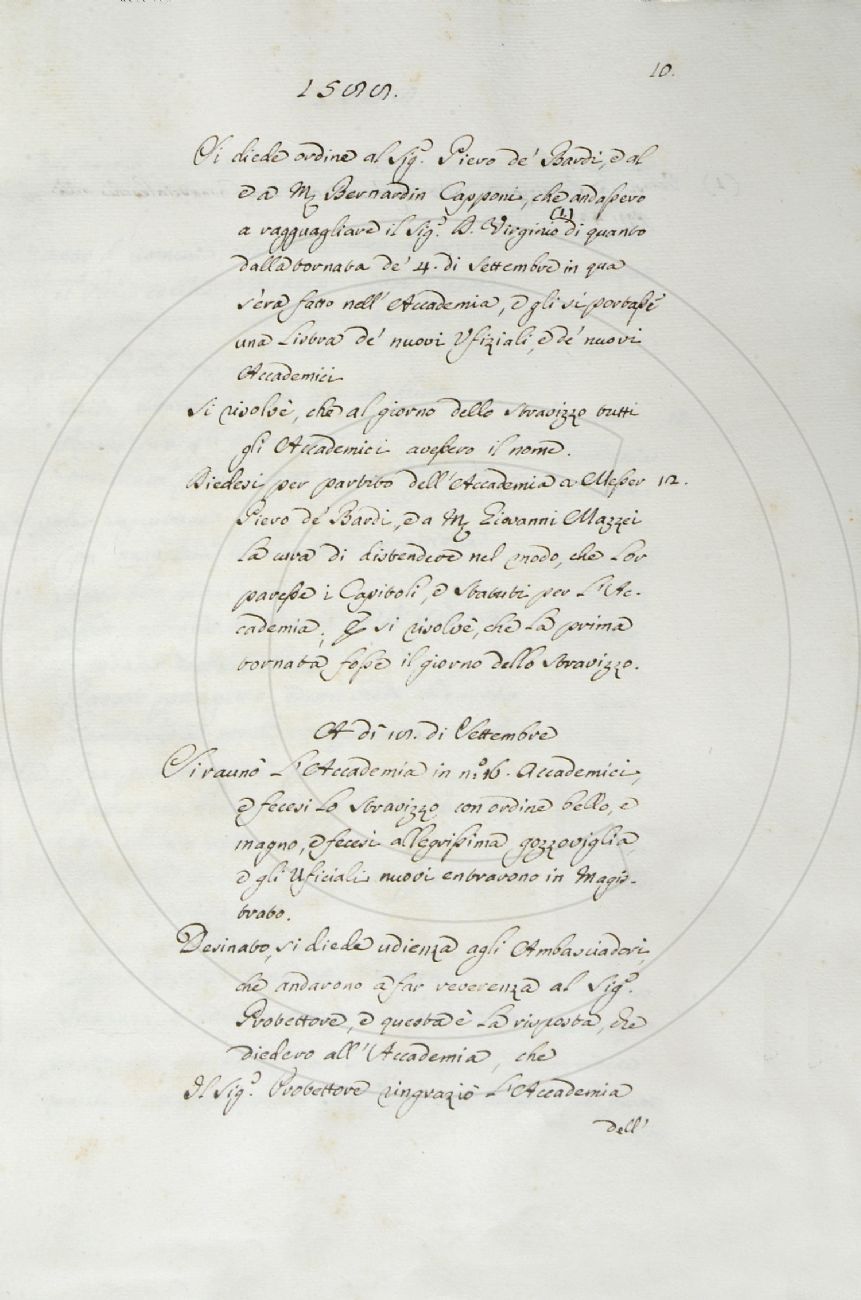 10.
1588.
Si diede ordine al Sig.r Piero de' Bardi, e al
e a M. Bernardin Capponi, che andassero
a ragguagliare il Sig.r D. Virginio (1) di quanto
dalla tornata de' 4. di Settembre in qua
s'era fatto nell'Accademia, e gli si portasse
una Listra de' nuovi Ufiziali, e de' nuovi
Accademici
Si risolvè, che al giorno dello stravizzo tutti
gli Accademici avessero il nome.
Diedesi per partito dell'Accademia a Messer 12.
Piero de' Bardi, e a M. Giovanni Mazzei
la cura di distendere nel modo, che lor
paresse i Capitoli, e Statuti per l'Ac-
cademia; E si risolvè, che la prima
tornata fosse il giorno dello stravizzo.
A dì 18. di Settembre
Si raunò l'Accademia in n.o 16. Accademici,
e fecesi lo stravizzo con ordine bello, e
magno, e fecesi allegrissima gozzoviglia,
e gli Uficiali nuovi entrarono in Magis-
trato.
Desinato, si diede udienza agli Ambasciadori,
che andarono a far reverenza al Sig.r
Protettore, e questa è la risposta, che
diedero all'Accademia, che
Il Sig.r Protettore ringraziò l'Accademia
dell'